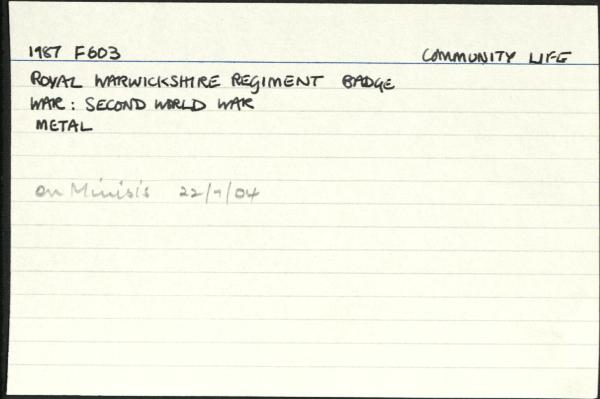 1987 F603 COMMUNITY LIFE
ROYAL WARWICKSHIRE REGIMENT BADGE
WAR : SECOND WORLD WAR
METAL
on Minisis 22/9/04